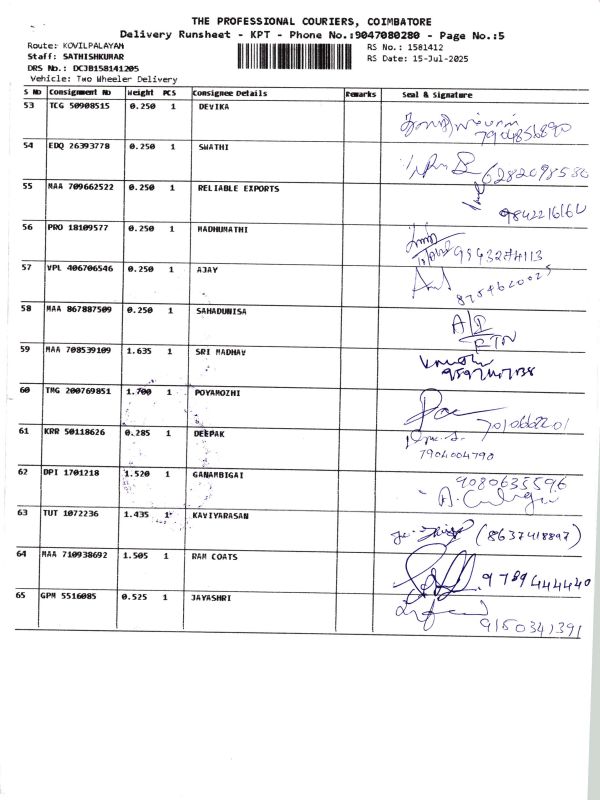 THE PROFESSIONAL COURIERS, COIMBATORE
Delivery Runsheet - KPT - Phone No.:9047080280 - Page No.:5
Route: KOVILPALAYAM RS No.: 1581412
Staff: SATHISHKUMAR RS Date: 15-Jul-2025
DRS No.: DCJB158141205
Vehicle: Two Wheeler Delivery
S No Consignment No Weight PCS Consignee Details Remarks Seal & Signature
53 TCG 50908515 0.250 1 DEVIKA
7904856890
54 EDQ 26393778 0.250 1 SWATHI
6282098580
55 MAA 709662522 0.250 1 RELIABLE EXPORTS
56 PRO 18109577 0.250 1 MADHUMATHI
9943274113
57 VPL 406706546 0.250 1 AJAY
58 MAA 867887509 0.250 1 SAHADUNISA
59 MAA 708539109 1.635 1 SRI MADHAV
60 TMG 200769851 1.700 1 POYAMOZHI
61 KRR 50118626 0.285 1 DEEPAK
7904004790
62 DPI 1701218 1.520 1 GANAMBIGAI
9080635596
63 TUT 1072236 1.435 1 KAVIYARASAN
(8637418897)
64 MAA 710938692 1.505 1 RAM COATS
9789444440
65 GPM 5516085 0.525 1 JAYASHRI
9150341391